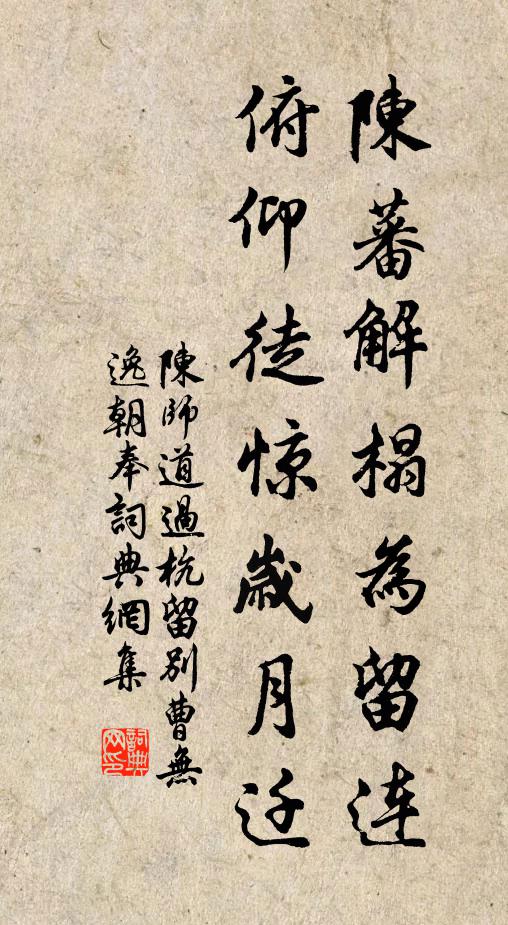 陳蕃解榻為留連
俯仰徒惊歲月迁
陳師道過杭留別曹無
逸朝奉詞典網集
詞典
网印